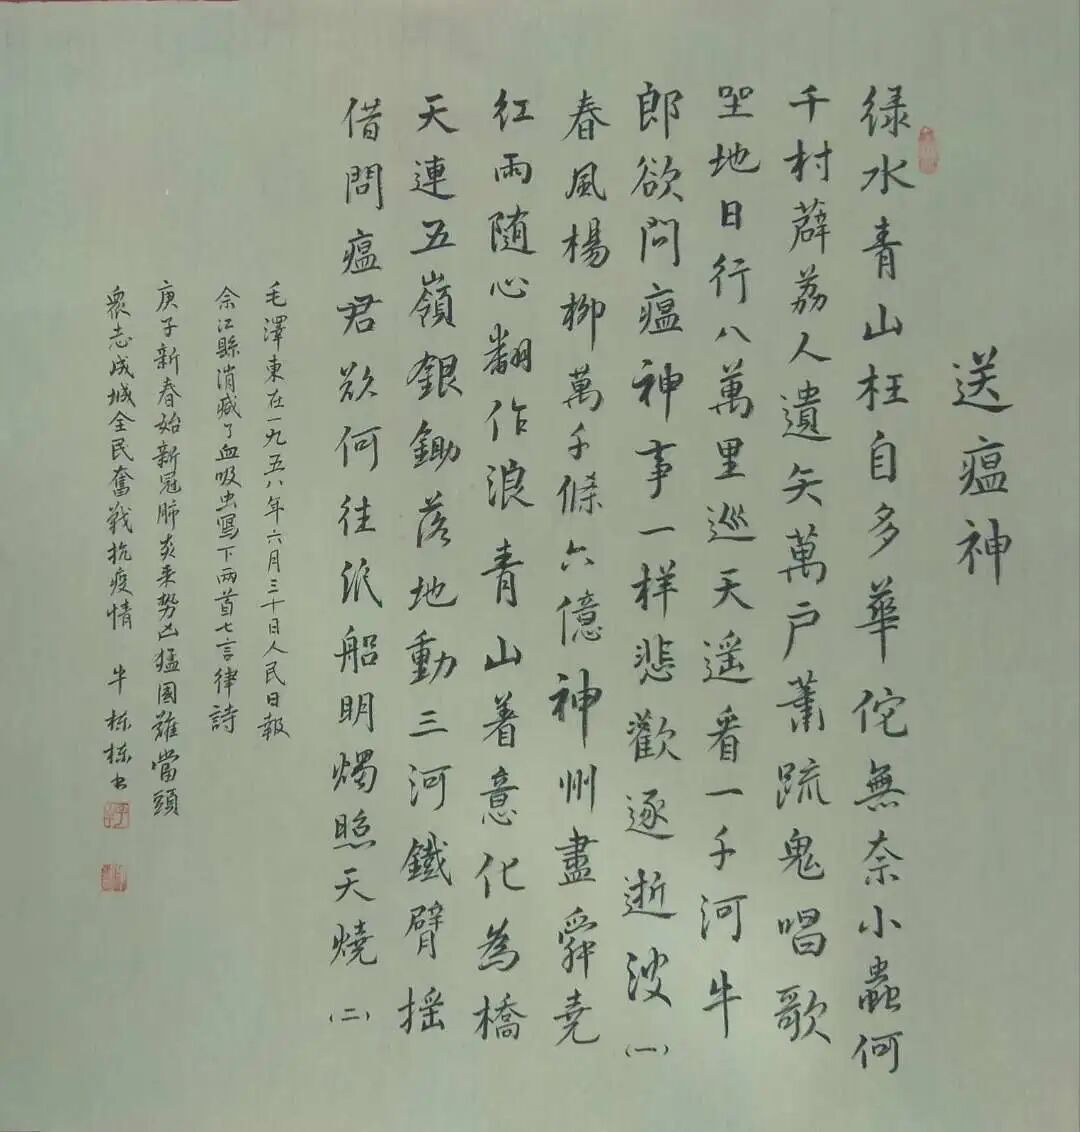 送瘟神
绿水青山枉自多華佗無奈小蟲何
千村薜荔人遺矢萬戶蕭疏鬼唱歌
坐地日行八萬里巡天遥看一千河牛
郎欲问瘟神事一样悲歡逐逝波(一)
春風楊柳萬千條六億神州盡舜堯
红雨随心翻作浪青山着意化為橋
天連五嶺銀鋤落地動三河鐵臂摇
借問瘟君欲何往纸船明燭照天燒(二)
毛澤東在一九五八年六月三十日人民日報
余江縣消滅了血吸虫寫下两首七言律詩
庚子新春始新冠肺炎来势凶猛國難當頭
衆志成城全民奮戰抗疫情 牛栋栋书